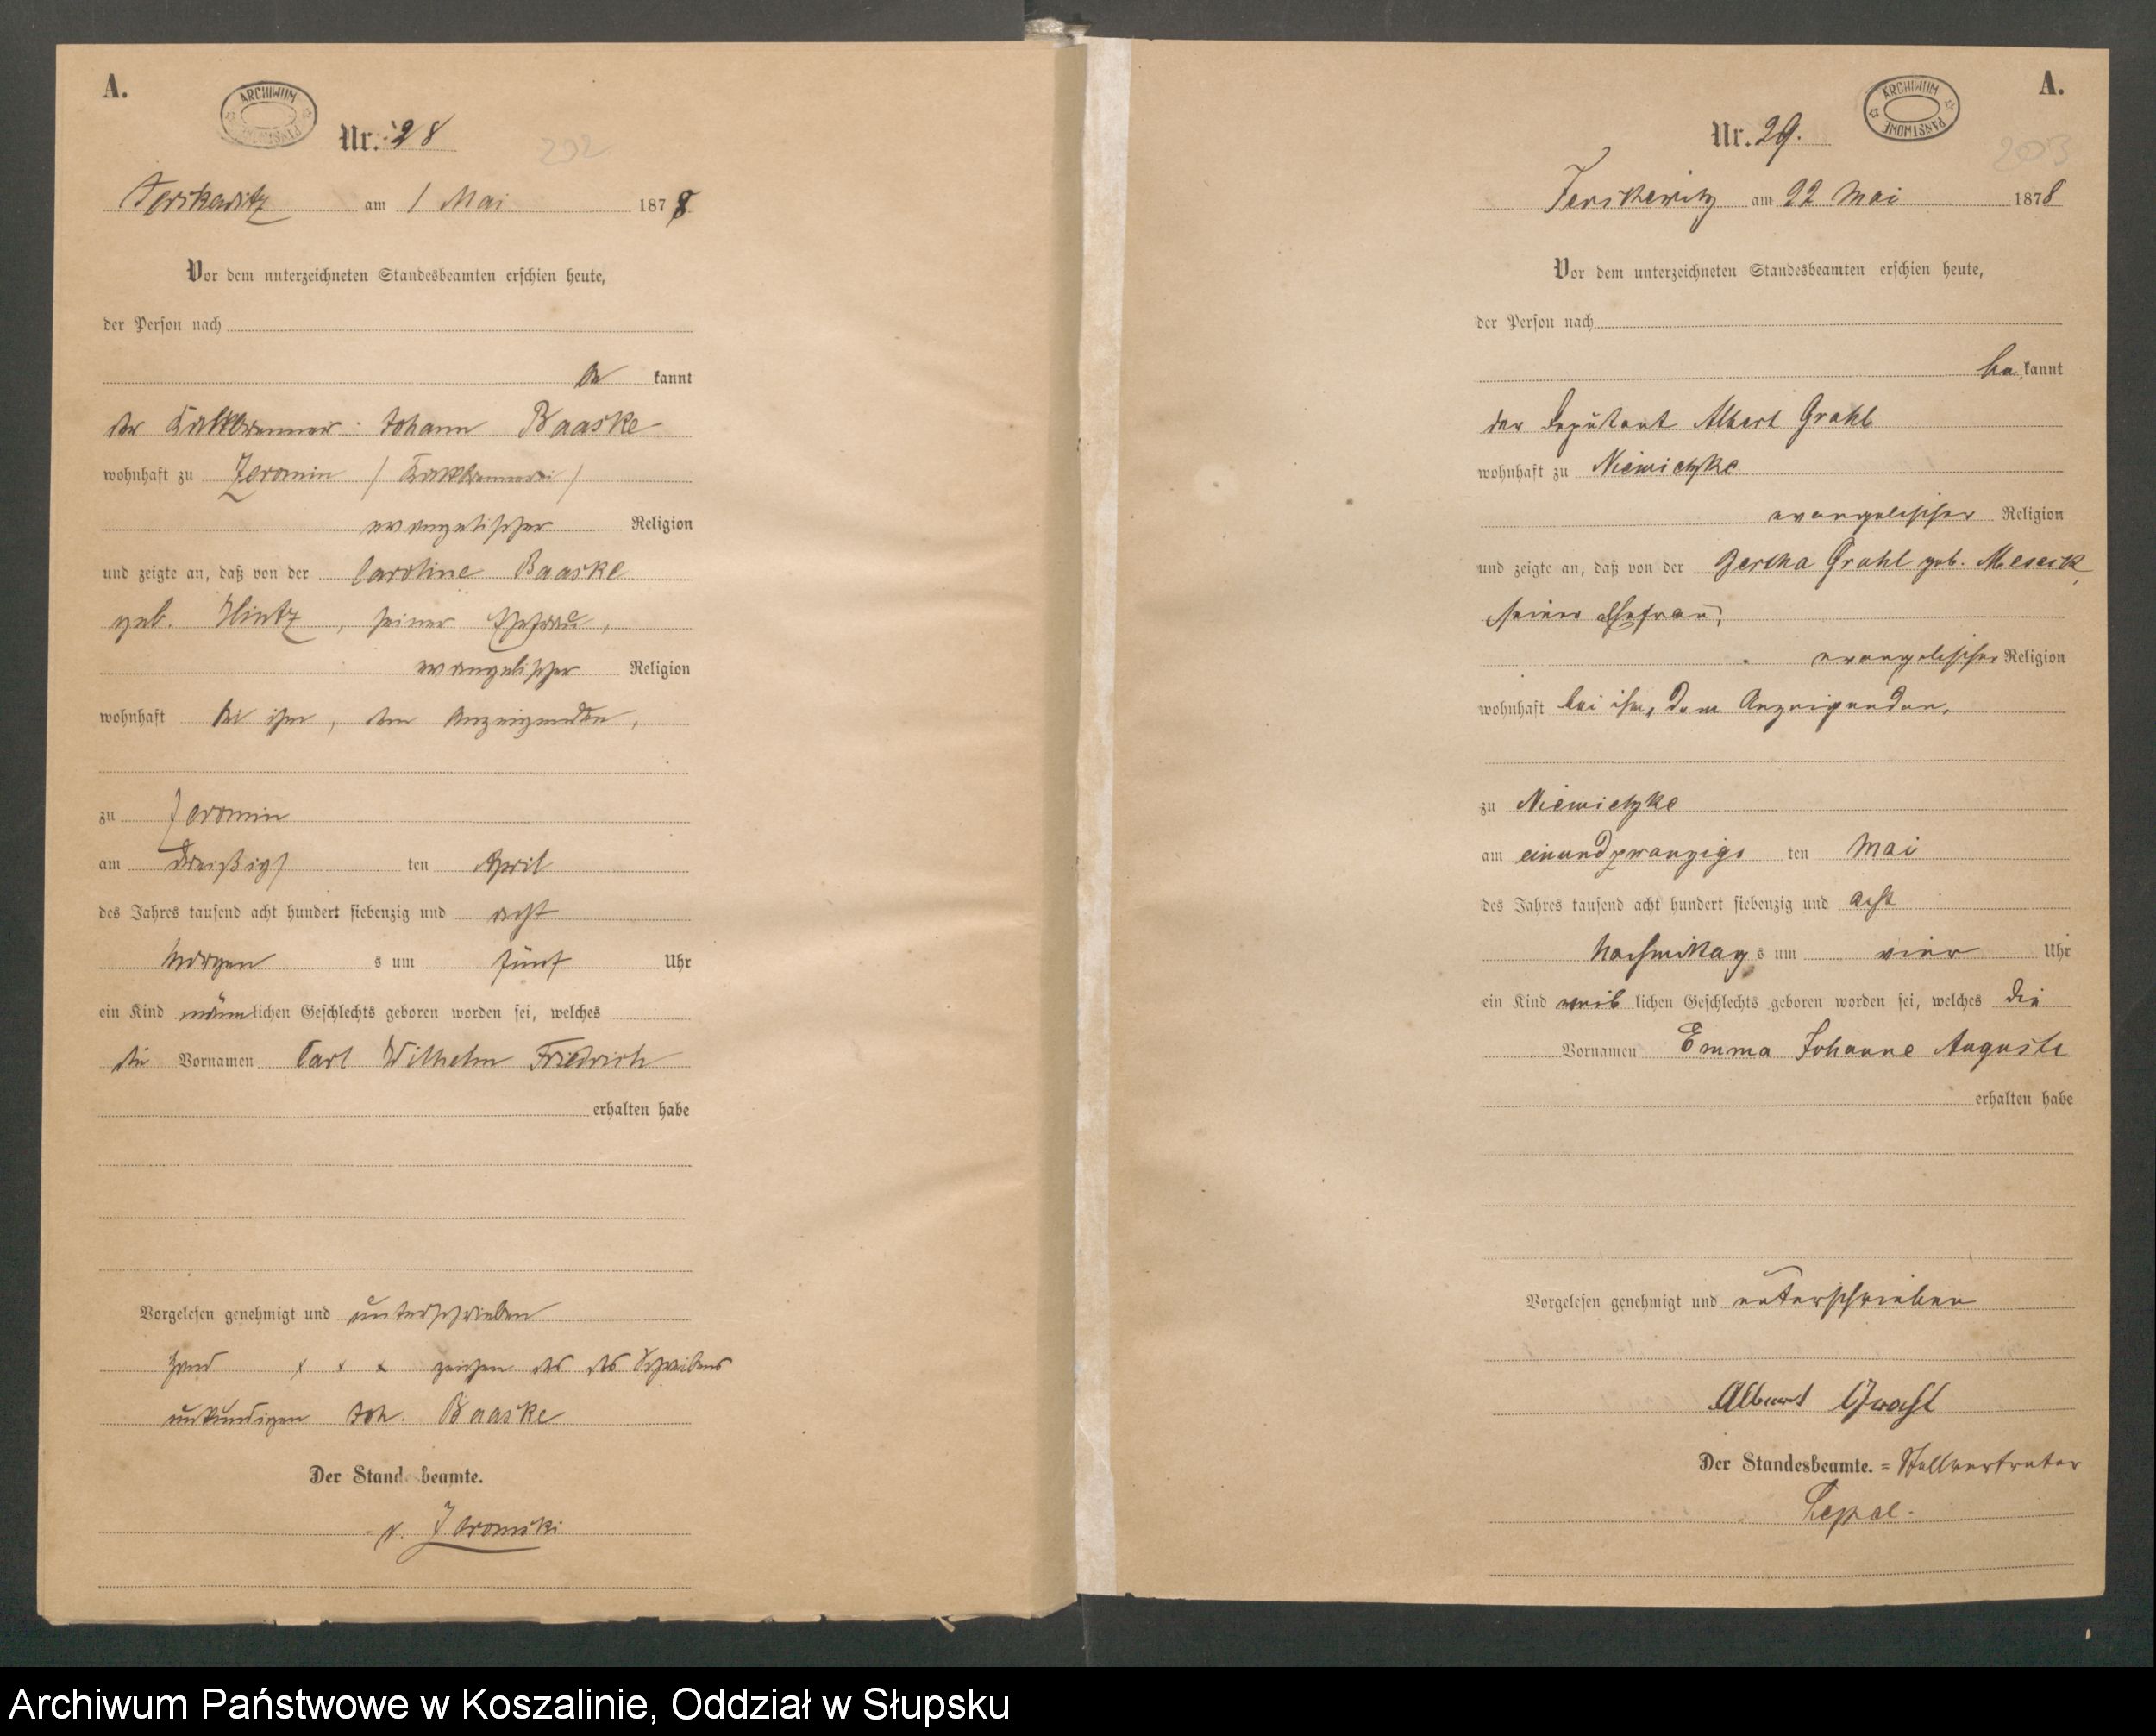 A.
ARCHIWUM PAŃSTWOWE
Nr. 28
202
Jerskewitz am 1 Mai 1878
Vor dem unterzeichneten Standesbeamten erschien heute,
der Person nach
be kannt
der Kalkbrenner Johann Baaske
wohnhaft zu Zeromin / Kalkbrennerei /
evangelischer Religion
und zeigte an, daß von der Caroline Baaske
geb. Hintz, seiner Ehefrau,
evangelischer Religion
wohnhaft bei ihm, dem Anzeigenden,
zu Zeromin
am dreißigs ten April
des Jahres tausend acht hundert siebenzig und acht
Morgen s um fünf Uhr
ein Kind männlichen Geschlechts geboren worden sei, welches
die Vornamen Carl Wilhelm Friedrich
erhalten habe
Vorgelesen genehmigt und unterschrieben
Hand x x x zeichen des des Schreibens
unkundigen Joh. Baaske
Der Standesbeamte.
v. Zeromski
A.
ARCHIWUM PAŃSTWOWE
Nr. 29.
203
Jerskewitz am 22 Mai 1878
Vor dem unterzeichneten Standesbeamten erschien heute,
der Person nach
be kannt
der Deputant Albert Grahl
wohnhaft zu Niemietzke
evangelischer Religion
und zeigte an, daß von der Bertha Grahl geb. Meseck,
seiner Ehefrau,
evangelischer Religion
wohnhaft bei ihm, dem Anzeigenden,
zu Niemietzke
am einundzwanzigs ten Mai
des Jahres tausend acht hundert siebenzig und acht
Nachmittag s um vier Uhr
ein Kind weib lichen Geschlechts geboren worden sei, welches die
Vornamen Emma Johanne Auguste
erhalten habe
Vorgelesen genehmigt und unterschrieben
Albert Grahl
Der Standesbeamte. = Stellvertreter
Archiwum Państwowe w Koszalinie, Oddział w Słupsku